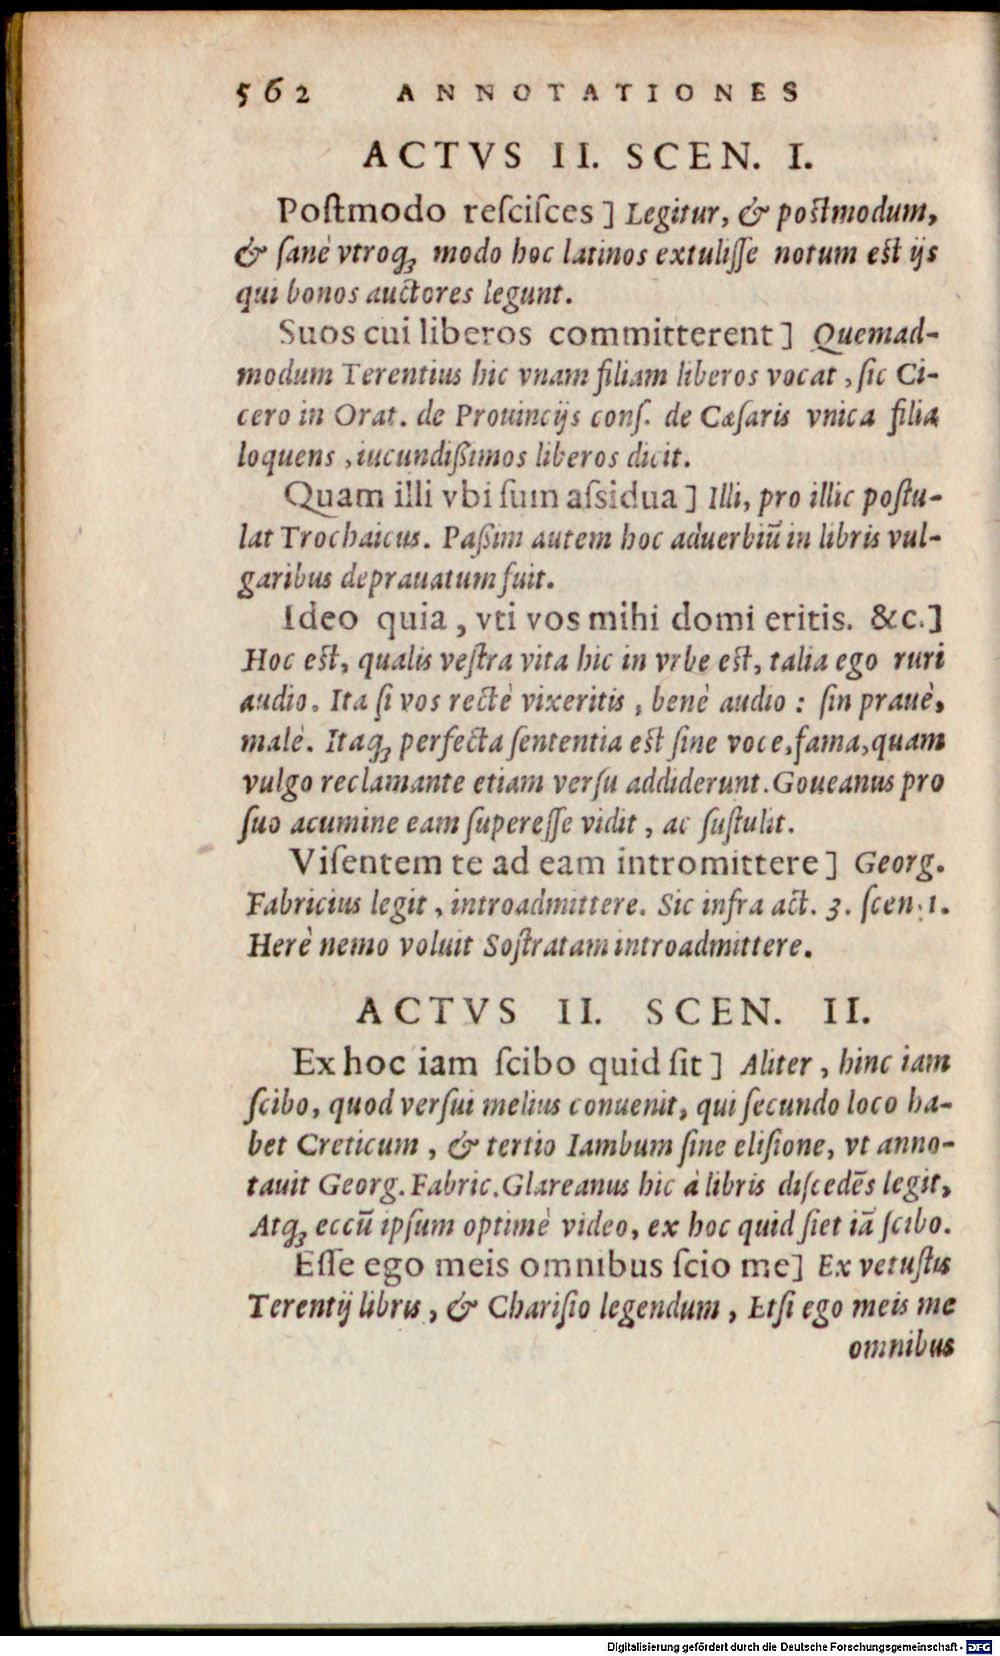 562 ANNOTATIONES
ACTVS II. SCEN. I.
Poſtmodo reſciſces] Legitur, & poſtmodum,
& ſanè vtroq́; modo hoc latinos extuliſſe notum eſt ijs
qui bonos auctores legunt.
Suos cui liberos committerent] Quemad-
modum Terentius hic vnam filiam liberos vocat, ſic Ci-
cero in Orat. de Prouincijs conſ. de Cæſaris vnica filia
loquens, iucundißimos liberos dicit.
Quam illi vbi ſum aſsidua] Illi, pro illic poſtu-
lat Trochaicus. Paßim autem hoc aduerbiū in libris vul-
garibus deprauatum fuit.
Ideo quia, vti vos mihi domi eritis. &c.]
Hoc eſt, qualis veſtra vita hic in vrbe eſt, talia ego ruri
audio. Ita ſi vos rectè vixeritis, benè audio: ſin prauè,
malè. Itaq́; perfecta ſententia eſt ſine voce, fama, quam
vulgo reclamante etiam verſu addiderunt. Goueanus pro
ſuo acumine eam ſupereſſe vidit, ac ſuſtulit.
Viſentem te ad eam intromittere] Georg.
Fabricius legit, introadmittere. Sic infra act. 3. ſcen. 1.
Herè nemo voluit Soſtratam introadmittere.
ACTVS II. SCEN. II.
Ex hoc iam ſcibo quid ſit] Aliter, hinc iam
ſcibo, quod verſui melius conuenit, qui ſecundo loco ha-
bet Creticum, & tertio Iambum ſine eliſione, vt anno-
tauit Georg. Fabric. Glareanus hic à libris diſcedēs legit,
Atq́; eccū ipſum optimè video, ex hoc quid ſiet iā ſcibo.
Eſſe ego meis omnibus ſcio me] Ex vetuſtis
Terentij libris, & Chariſio legendum, Etſi ego meis me
omnibus
Digitalisierung gefördert durch die Deutsche Forschungsgemeinschaft - DFG